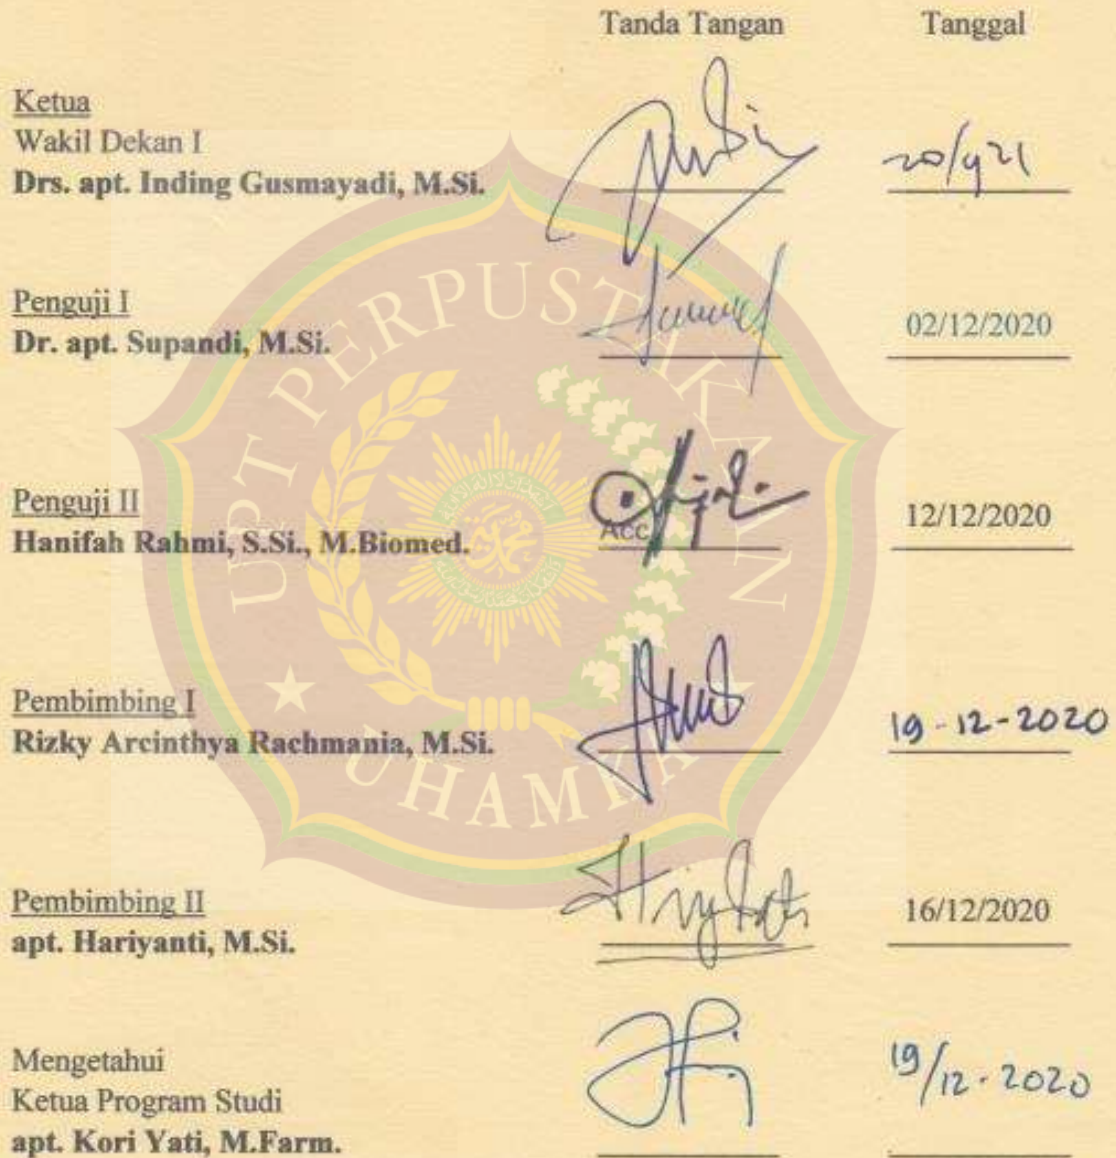 Tanda Tangan Tanggal
Ketua
Wakil Dekan I
Drs. apt. Inding Gusmayadi, M.Si. 20/9 21
Penguji I
Dr. apt. Supandi, M.Si. 02/12/2020
Penguji II
Hanifah Rahmi, S.Si., M.Biomed. Acc 12/12/2020
Pembimbing I
Rizky Arcinthya Rachmania, M.Si. 19-12-2020
Pembimbing II
apt. Hariyanti, M.Si. 16/12/2020
Mengetahui
Ketua Program Studi
apt. Kori Yati, M.Farm. 19/12-2020
UPT PERPUSTAKAAN
UHAMKA